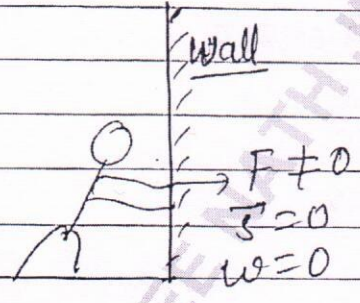 Wall
F ≠ 0
s⃗ = 0
w = 0